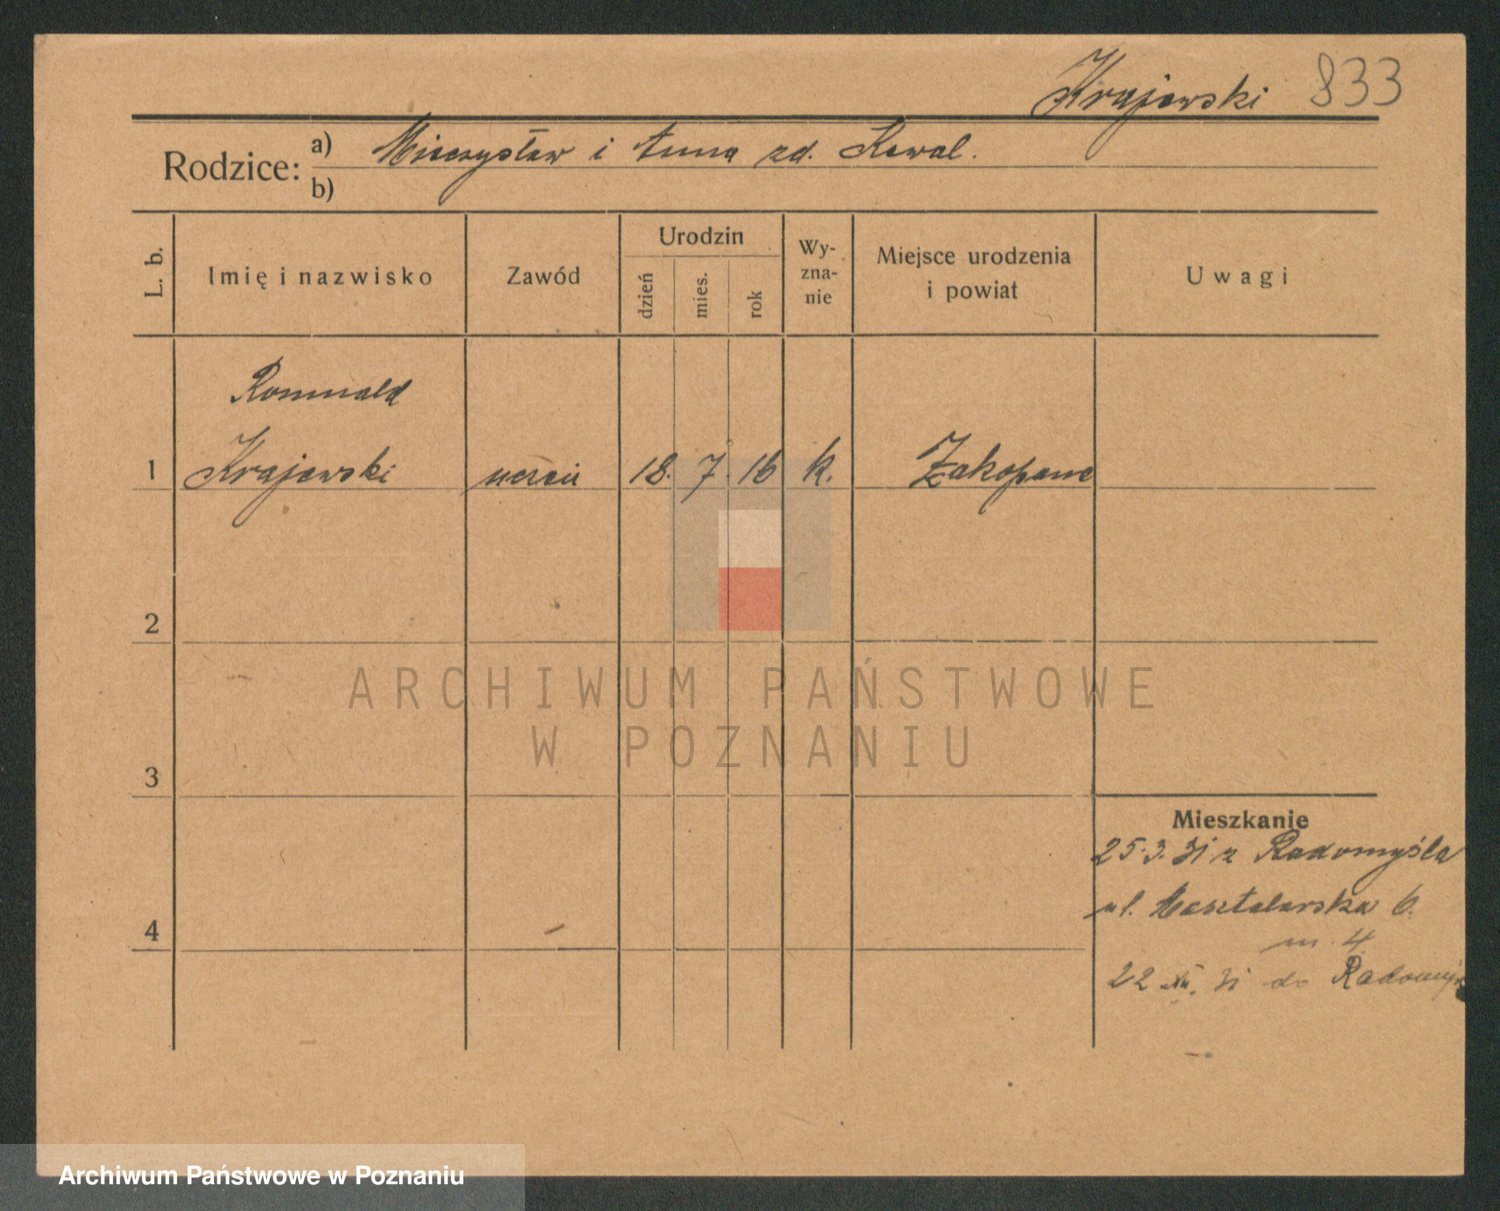 Krajewski 833
Rodzice: a) Mieczysław i Anna zd. Kowal.
b)
L. b. Imię i nazwisko Zawód Urodzin dzień mies. rok Wy-zna-nie Miejsce urodzenia i powiat Uwagi
Romuald
1 Krajewski uczeń 18. 7. 16 k. Zakopane
2
ARCHIWUM PAŃSTWOWE
W POZNANIU
3
Mieszkanie
25.3.31 z Radomyśla
ul. Masztalarska 6.
4
m. 4
22 XII. 31 do
Archiwum Państwowe w Poznaniu